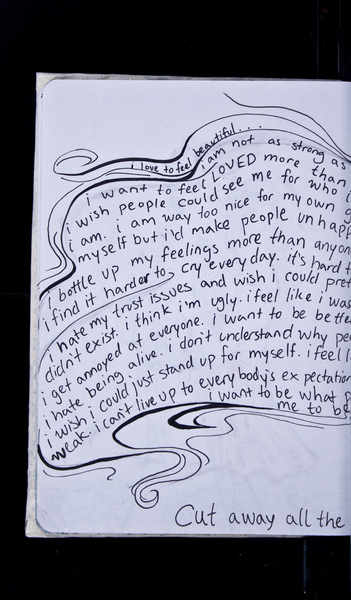 i love to feel beautiful....
i am not as strong as
i want to feel LOVED more than
i wish people could see me for who i
am. i am way too nice for my own g
myself but i'd make people unhapp
i bottle up my feelings more than anyon
i find it harder to cry everyday. it's hard t
i hate my trust issues and wish i could pret
didn't exist. i think i'm ugly. i feel like i was
i get annoyed at everyone. i want to be bette
i hate being alive. i don't understand why peo
i wish i could just stand up for myself. i feel l
weak. i can't live up to everybody's expectation
i want to be what p
me to be
Cut away all the